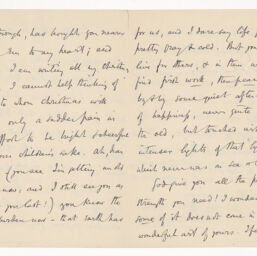 through, has brought you nearer
to my heart; and
I am writing all my Christmas
I cannot help thinking of
to whom Christmas with
only a sudden pain is
effort to be bright
children's sake. Ah,
(you see I'm sitting
now, and I still see you as
you last!) you know the
burden now - that earth has
for us, and I dare say life
pretty gray & cold. But you
live for others, & in them
find first work, then peace
by & by some quiet after
of happiness, never quite
the old, but touched with
intenser lights of that
which never was on sea or
God give you all the
strength you need! I wonder
some of it does not come in
wonderful art of yours. I